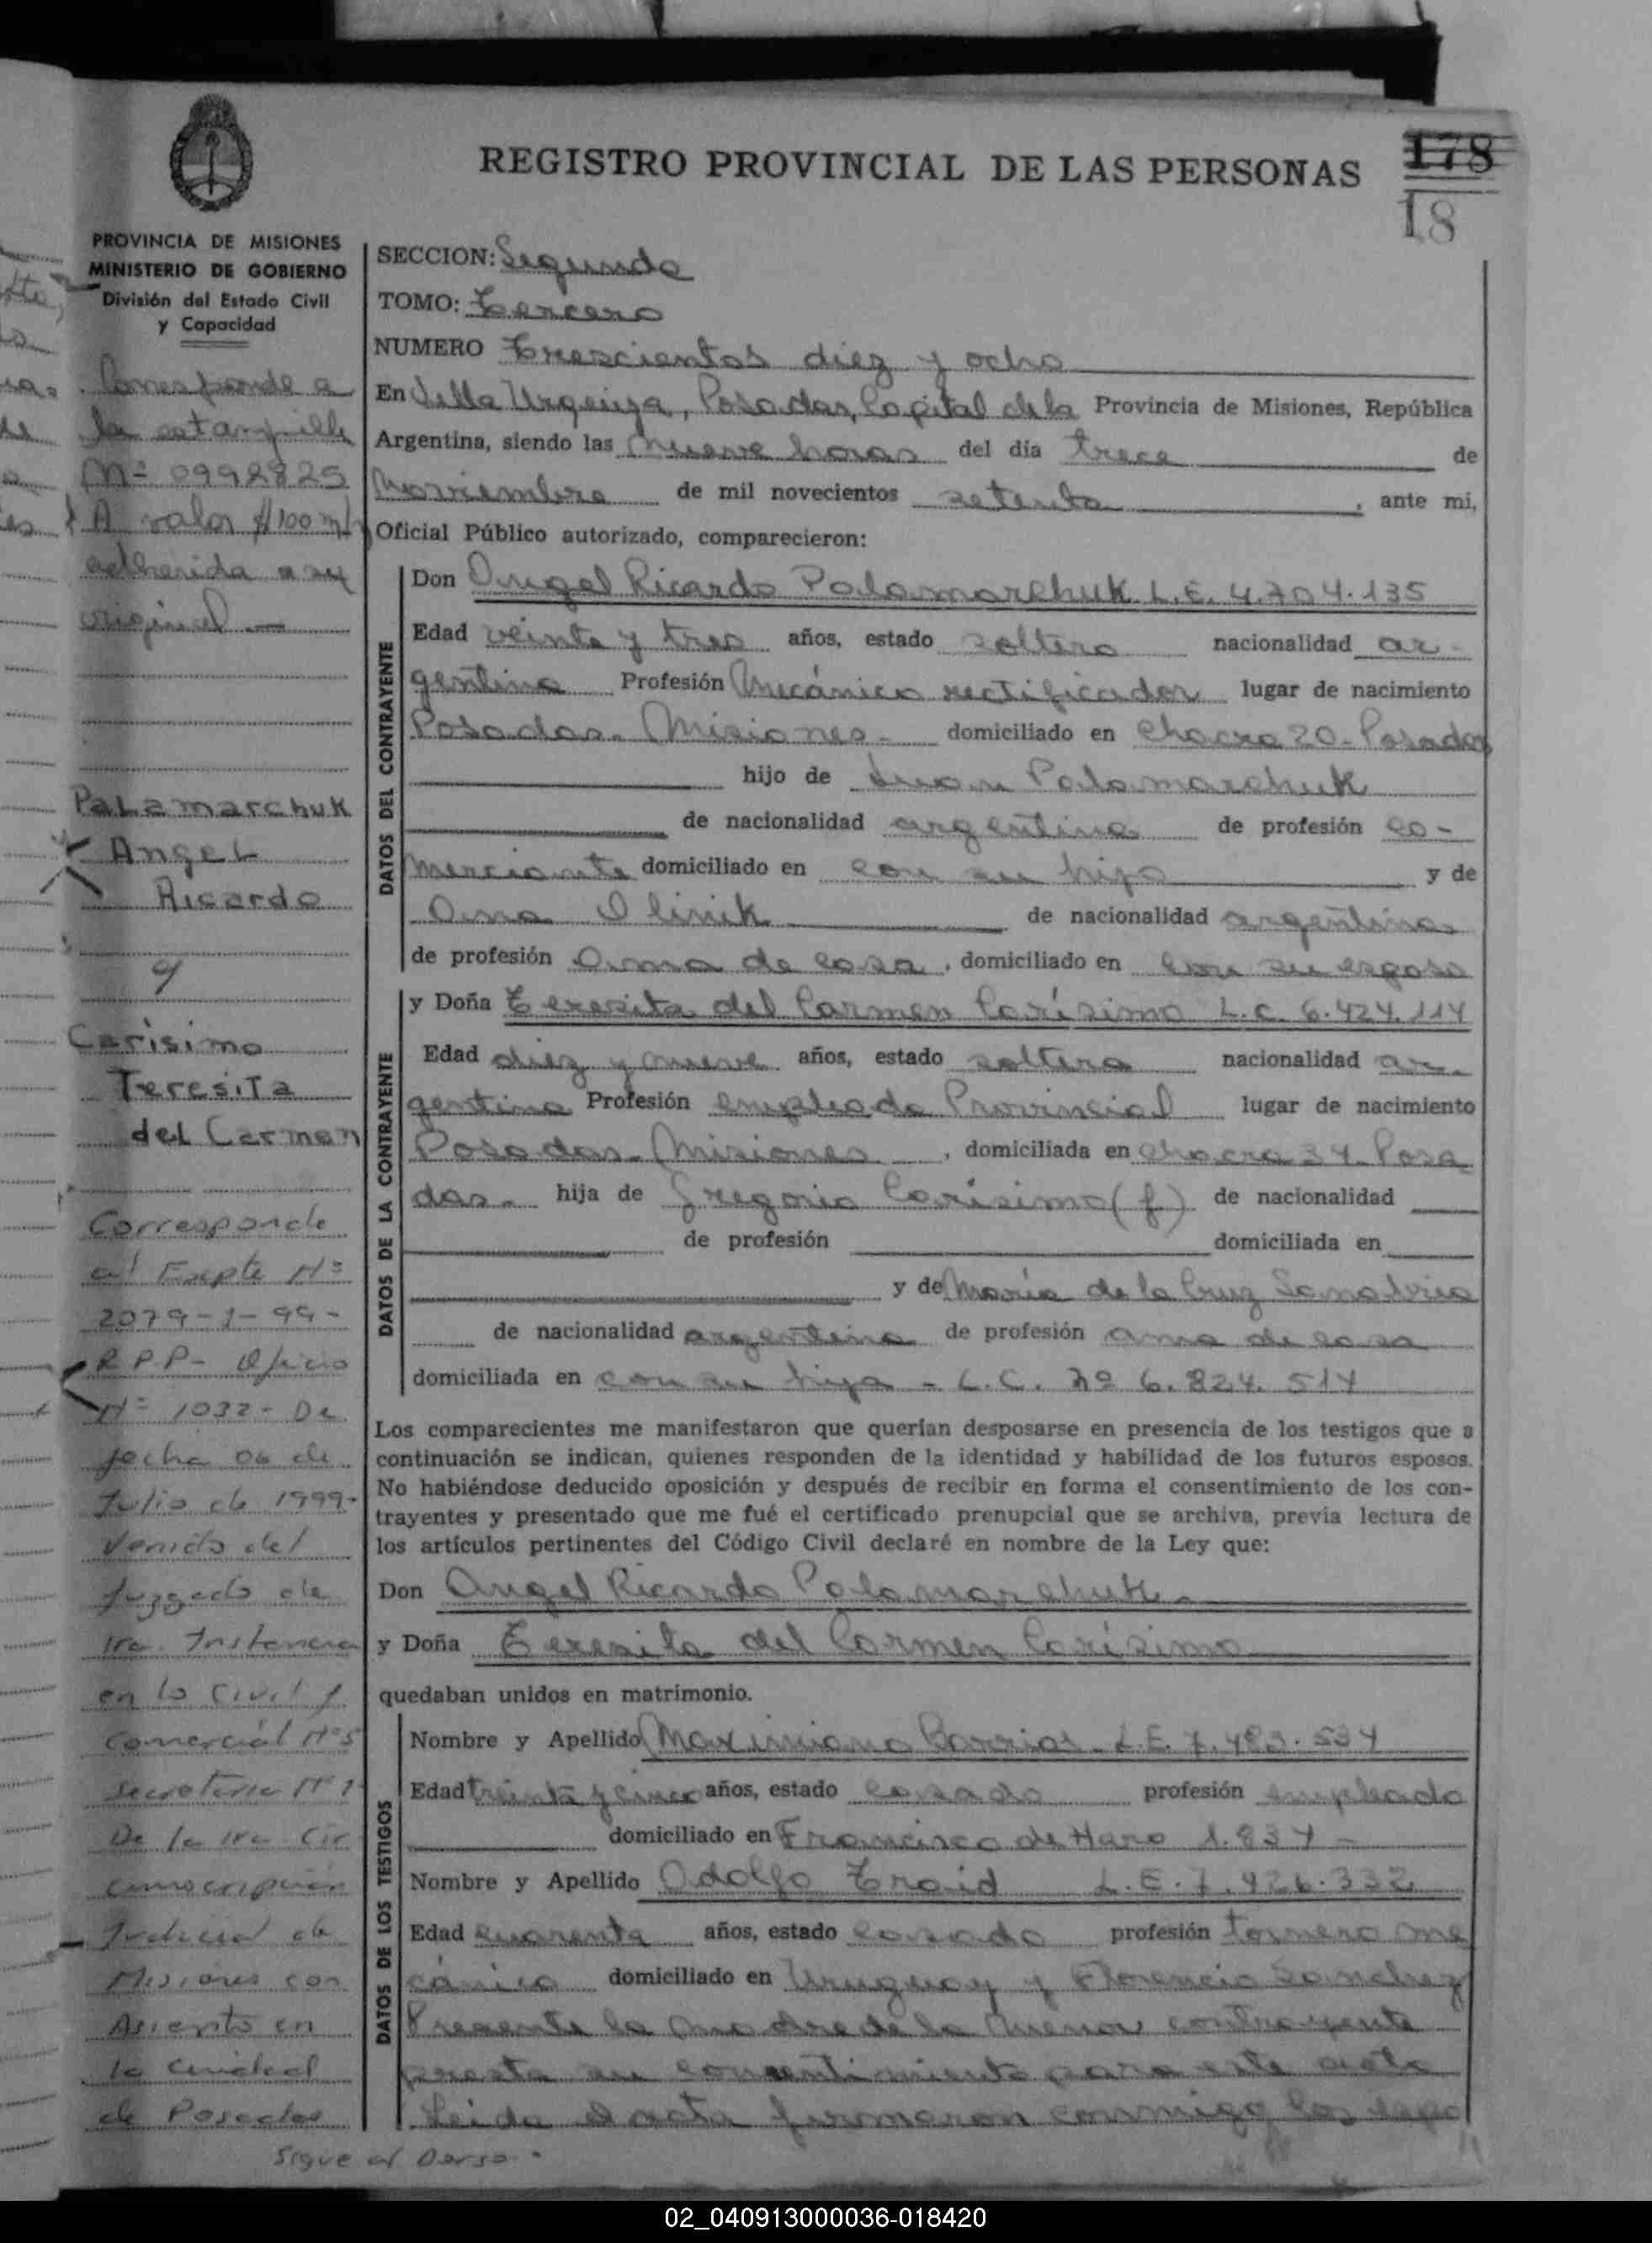 REGISTRO PROVINCIAL DE LAS PERSONAS
178
18
PROVINCIA DE MISIONES
MINISTERIO DE GOBIERNO
División del Estado Civil
y Capacidad
Corresponde a
la estampilla
Nº 0992825
A valor $100 m/n
adherida a su
original —
Palamarchuk
Angel
Ricardo
y
Carìsimo
Teresita
del Carmen
Corresponde
al Expte Nº
2079-1-99-
R P P- Oficio
Nº 1032- De
fecha 06 de
Julio de 1999-
Venido del
Juzgado de
1ra. Instancia
en lo Civil y
Comercial Nº5
Secretaria Nº1
De la 1ra. Cir
cunscripción
Judicial de
Misiones con
Asiento en
la ciudad
de Posadas
Sigue al Dorso -
SECCION: Segunda
TOMO: Tercero
NUMERO Trescientos diez y ocho
En Villa Urquiza, Posadas, Capital de la Provincia de Misiones, República
Argentina, siendo las nueve horas del día trece de
Noviembre de mil novecientos setenta, ante mi,
Oficial Público autorizado, comparecieron:
DATOS DEL CONTRAYENTE
Don Angel Ricardo Palamarchuk L.E. 4.704.135
Edad veinte y tres años, estado soltero nacionalidad ar-
gentina Profesión Mecánico rectificador lugar de nacimiento
Posadas- Misiones- domiciliado en Chacra 20- Posadas
hijo de Juan Palamarchuk
de nacionalidad argentina de profesión co-
merciante domiciliado en con su hijo y de
Ana Olinik de nacionalidad argentina
de profesión Ama de casa, domiciliado en con su esposo
DATOS DE LA CONTRAYENTE
y Doña Teresita del Carmen Carísimo L.C. 6.424.114
Edad diez y nueve años, estado soltera nacionalidad ar-
gentina Profesión empleada Provincial lugar de nacimiento
Posadas- Misiones, domiciliada en chacra 34- Posa
das- hija de Gregorio Carísimo (f) de nacionalidad
de profesión domiciliada en
y de María de la Cruz Sanabria
de nacionalidad argentina de profesión ama de casa
domiciliada en con su hija - L.C. Nº 6.824.514
Los comparecientes me manifestaron que querían desposarse en presencia de los testigos que a
continuación se indican, quienes responden de la identidad y habilidad de los futuros esposos.
No habiéndose deducido oposición y después de recibir en forma el consentimiento de los con-
trayentes y presentado que me fué el certificado prenupcial que se archiva, previa lectura de
los artículos pertinentes del Código Civil declaré en nombre de la Ley que:
Don Angel Ricardo Palamarchuk-
y Doña Teresita del Carmen Carísimo
quedaban unidos en matrimonio.
DATOS DE LOS TESTIGOS
Nombre y Apellido Maximiano Barrios- L.E. 7.493.534
Edad treinta y cinco años, estado casado profesión empleado
domiciliado en Francisco de Haro 1.834-
Nombre y Apellido Adolfo Traid L.E. 7.426.332
Edad cuarenta años, estado casado profesión tornero me
cánico domiciliado en Uruguay y Florencio Sanchez
Presente la madre de la menor contrayente
presta su consentimiento para este acto
Leida el acta firmaron conmigo los espo
02_040913000036-018420